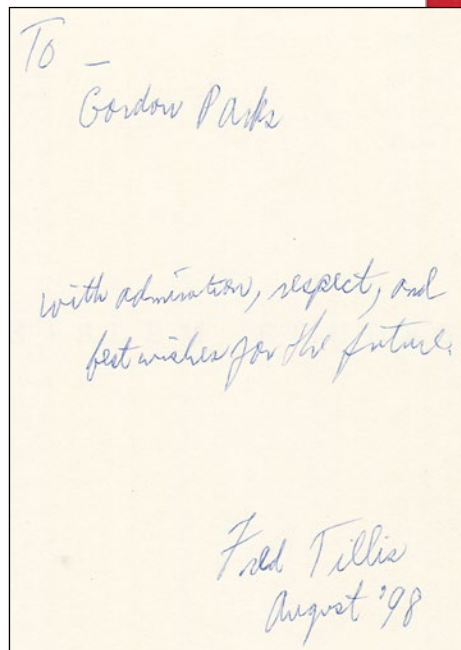 To –
Gordon Parks
with admiration, respect, and
best wishes for the future.
Fred Tillis
August '98